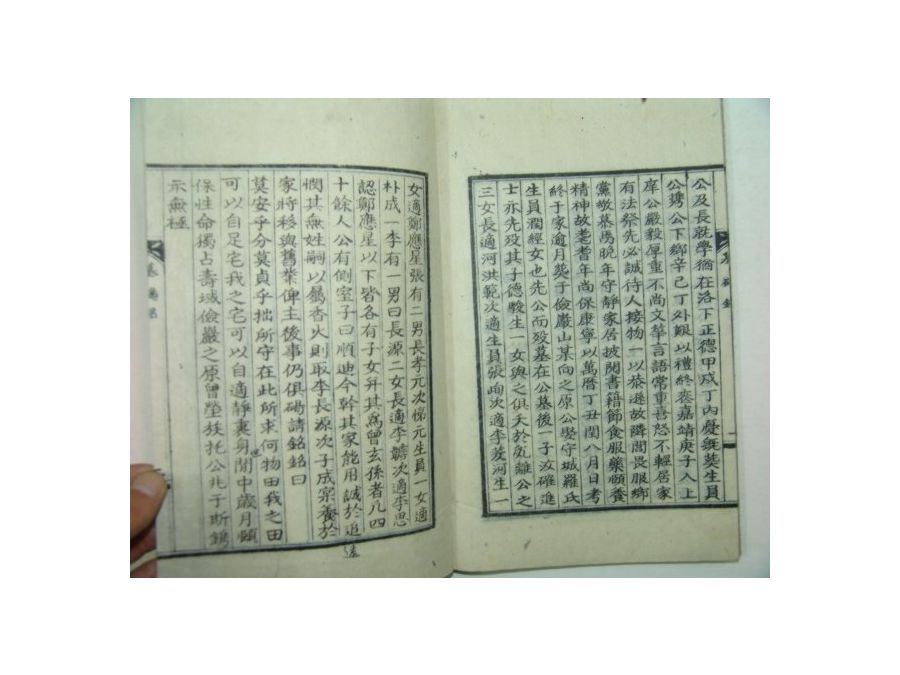 公及長就學猶在洛下正德甲戌丁內憂旣葬生員
公携公下鄉辛巳丁外艱以禮終喪嘉靖庚子入上
庠公嚴毅厚重不尚文華言語常重喜怒不輕居家
有法祭先必誠待人接物一以恭遜故隣閭畏服鄉
黨敬慕焉晚年守靜家居披閱書籍節食服藥頤養
精神故老耆年尚保康寧以萬曆丁丑閏八月日考
終于家逾月葬于儉嚴山某向之原公娶守城羅氏
生員潤經女也先公而歿墓在公墓後一子汝確進
士亦先歿其子德駿生一女與之俱夭於亂離公之
三女長適河洪範次適生員張峋次適李菱河生一
女適鄭應星張有二男長孝元次悌元生員一女適
朴成一李有一男曰長源二女長適李 次適李思
認鄭應星以下皆各有子女幷其爲曾玄孫者凡四
十餘人公有側室子曰順迪今幹其家能用誠於追
遠
憫其無姓嗣以屬香火則取李長源次子成宗養於
家將移與舊業俾主後事仍俱碣請銘銘曰
莫安乎分莫貞乎拙所守在此所求何物田我之田
可以自足宅我之宅可以自適靜裏身閒中歲月頤
保性命獨占壽域儉嚴之原曾塋族托公兆于斯鐫
示無極